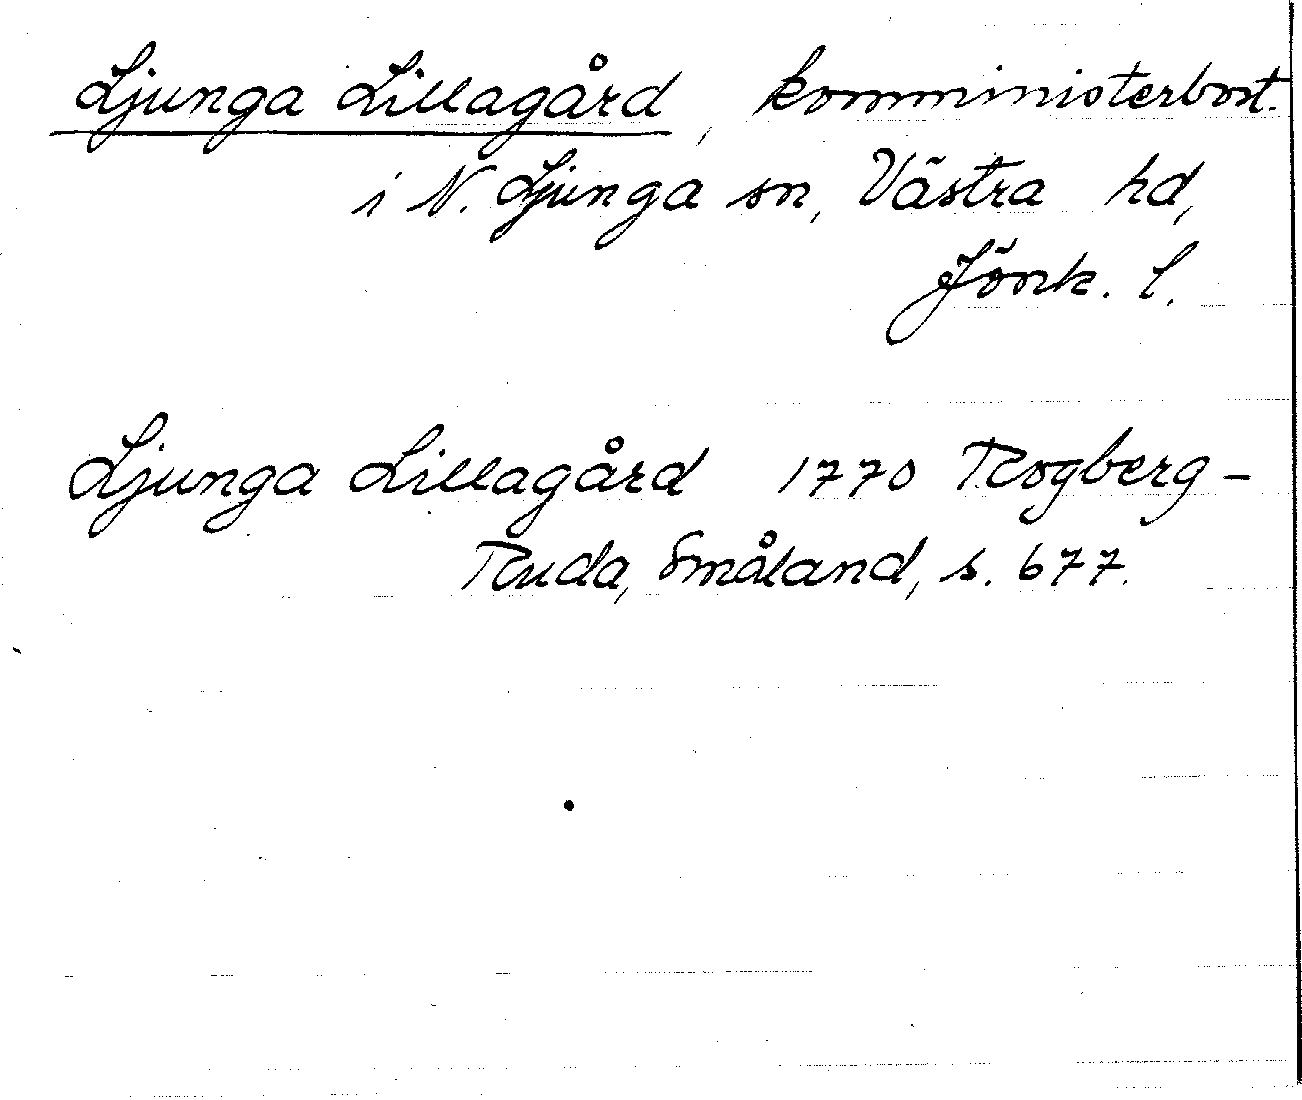 Ljunga Lillagård, komministerbost.
i N. Ljunga sn, Västra hd,
Jönk. l.
Ljunga Lillagård 1770 Rogberg-
Ruda, Småland, s. 677.